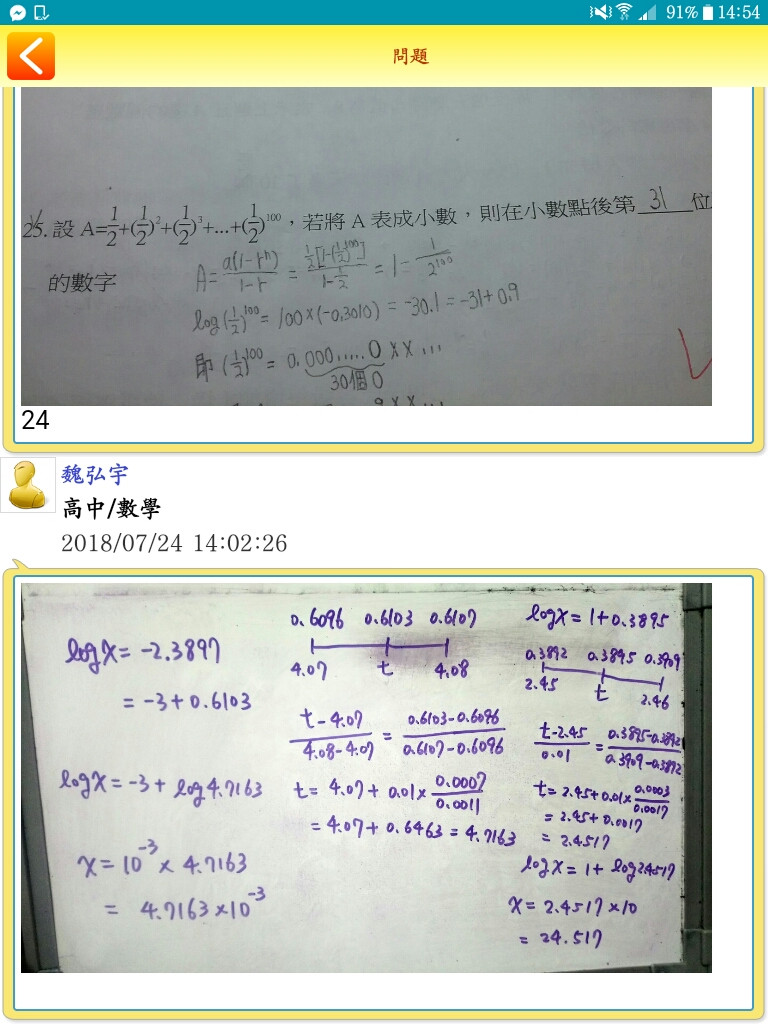 91% 14:54
問題
25. 設 A=1/2+(1/2)²+(1/2)³+...+(1/2)¹⁰⁰，若將 A 表成小數，則在小數點後第 31 位
的數字
A = a(1-rⁿ)/(1-r) = 1/2[1-(1/2)¹⁰⁰]/(1-1/2) = 1 - 1/2¹⁰⁰
log(1/2)¹⁰⁰ = 100×(-0.3010) = -30.1 = -31+0.9
即 (1/2)¹⁰⁰ = 0.000.....0 x x ...
30個0
24
魏弘宇
高中/數學
2018/07/24 14:02:26
logx = -2.3897
= -3+0.6103
logx = -3 + log4.7163
x = 10⁻³ × 4.7163
= 4.7163×10⁻³
0.6096 0.6103 0.6107
4.07 t 4.08
(t-4.07)/(4.08-4.07) = (0.6103-0.6096)/(0.6107-0.6096)
t = 4.07 + 0.01× 0.0007/0.0011
= 4.07+0.6463 = 4.7163
logx = 1+0.3895
0.3892 0.3895 0.3909
2.45 t 2.46
(t-2.45)/0.01 = (0.3895-0.3892)/(0.3909-0.3892)
t = 2.45+0.01× 0.0003/0.0017
= 2.45+0.0017
= 2.4517
logx = 1+ log2.4517
x = 2.4517×10
= 24.517